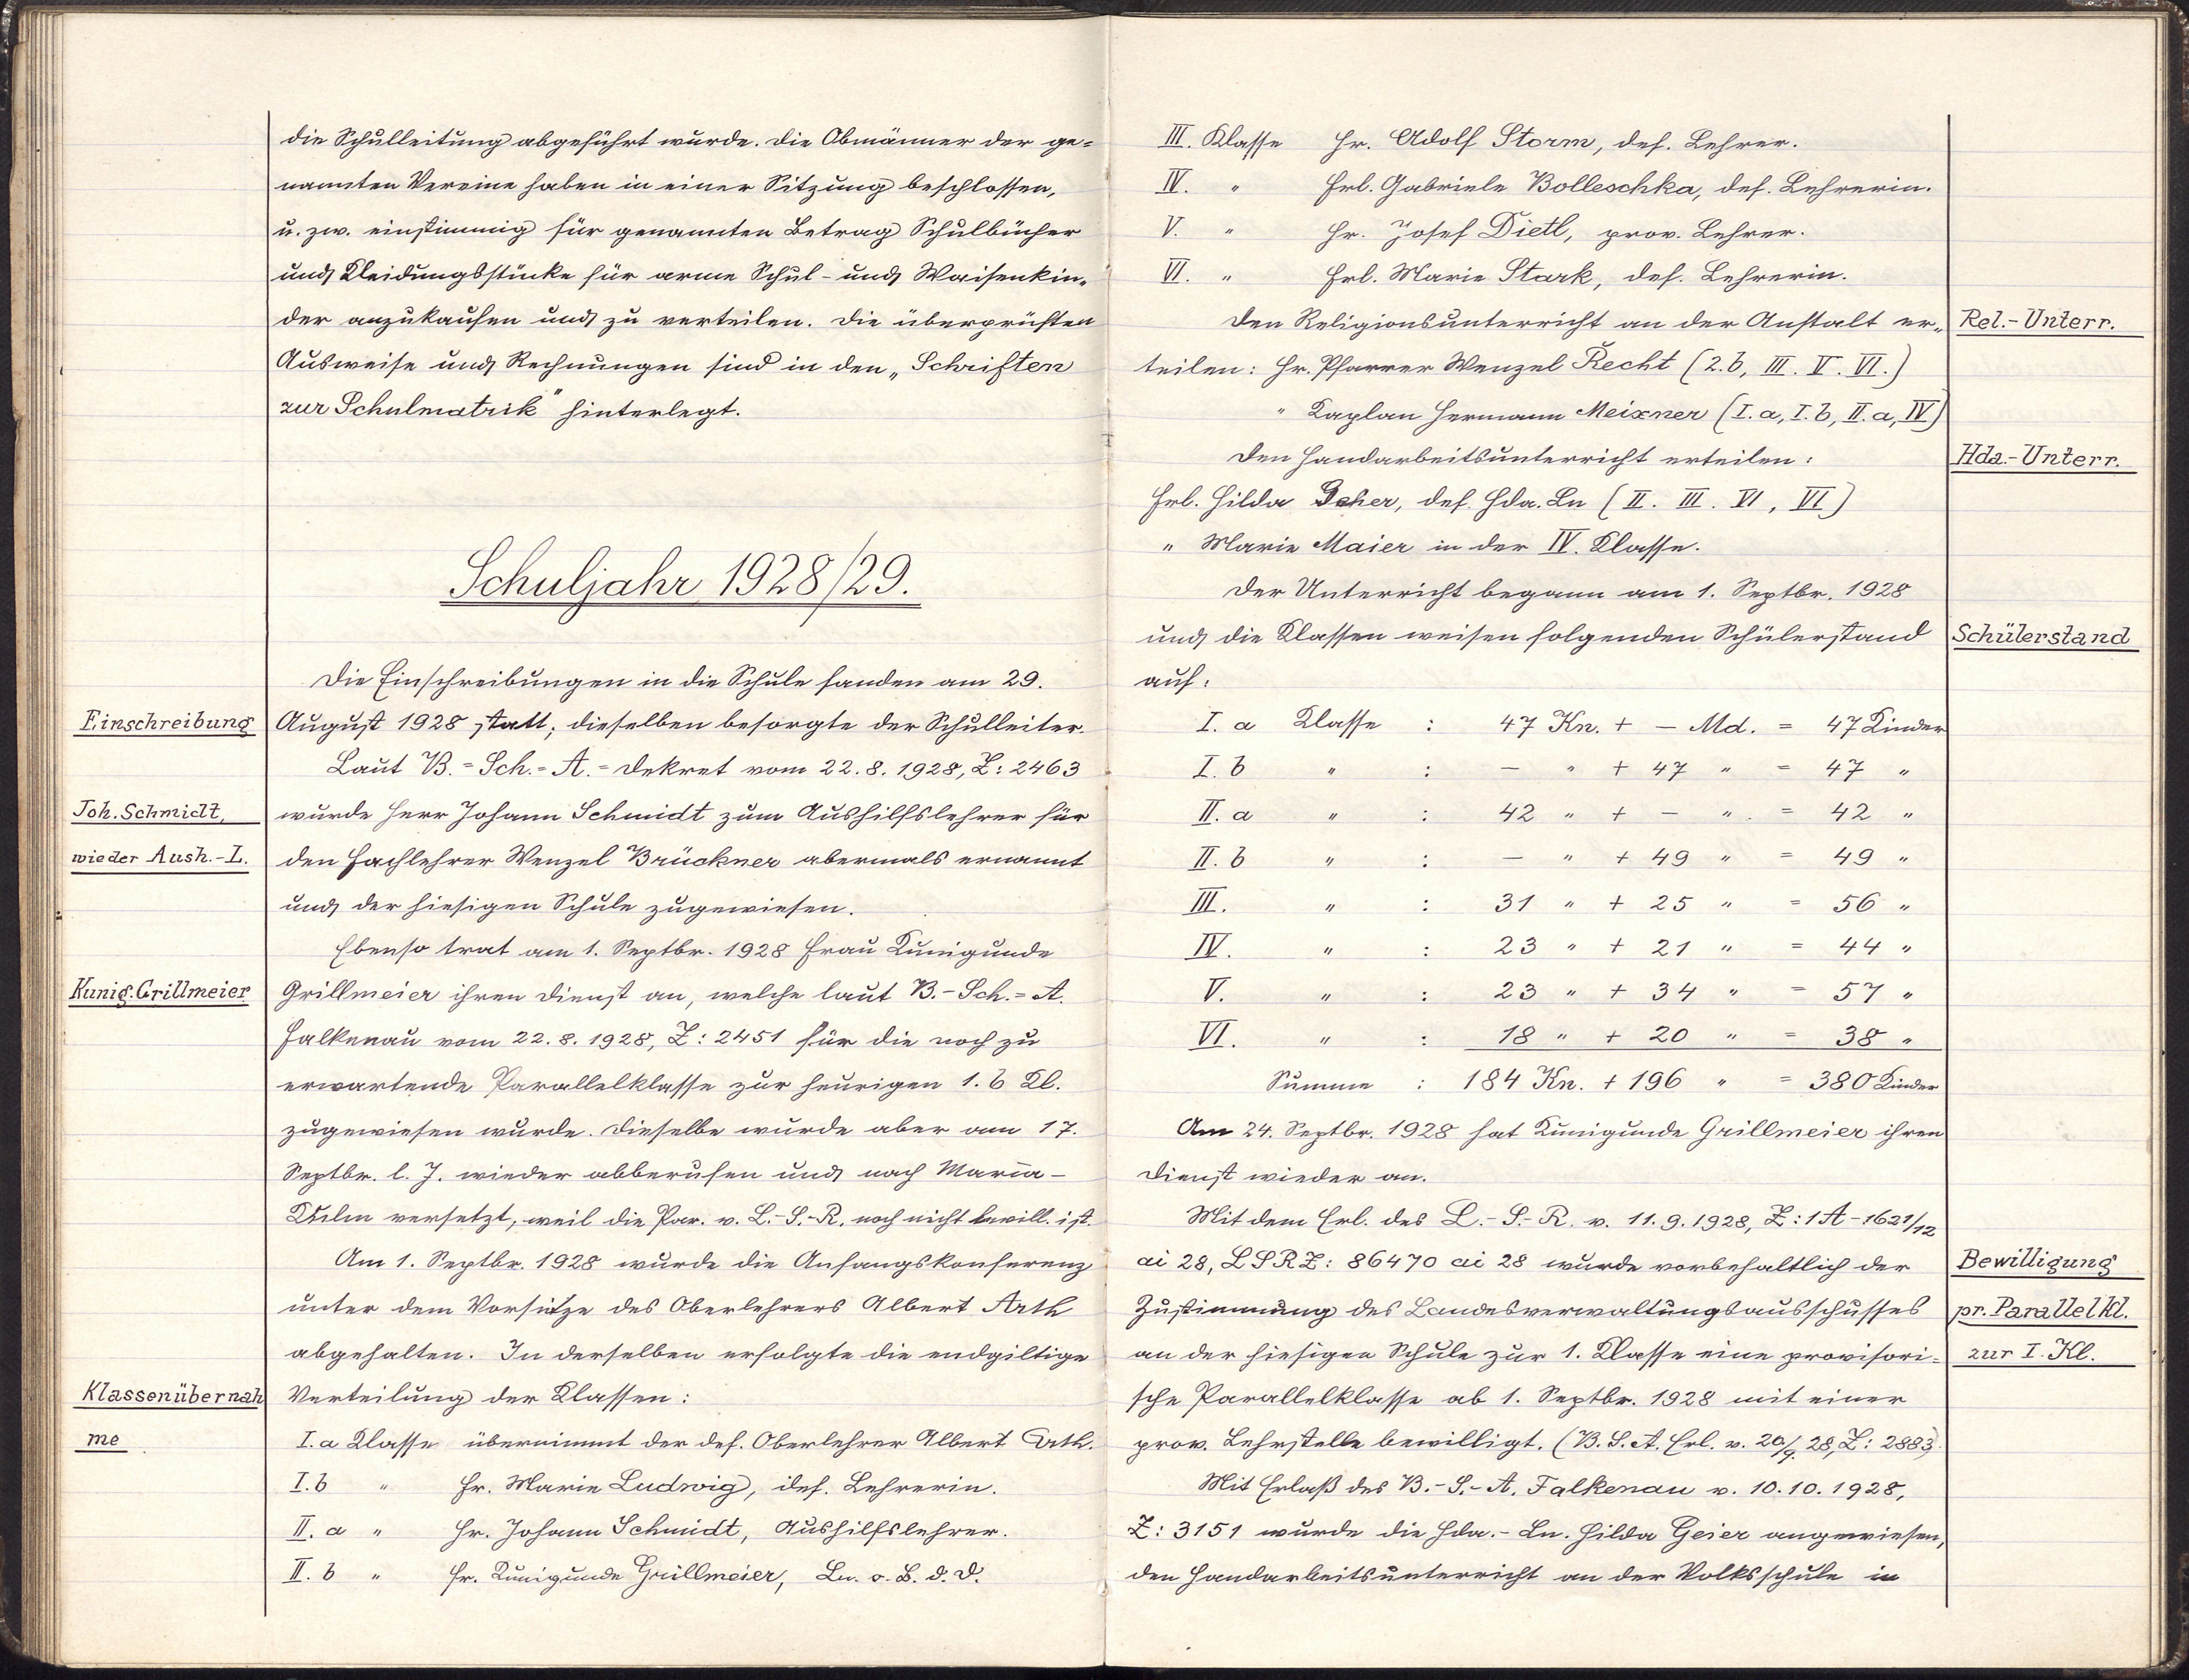 die Schulleitung abgeführt wurde. Die Obmänner der ge-
nannten Vereine haben in einer Sitzung beschlossen,
u. zw. einstimmig für genannten Betrag Schulbücher
und Kleidungsstücke für arme Schul- und Waisenkin-
der anzukaufen und zu verteilen. Die überprüften
Ausweise und Rechnungen sind in den „Schriften
zur Schulmatrik" hinterlegt.
Schuljahr 1928/29.
Die Einschreibungen in die Schule fanden am 29.
Einschreibung
August 1928 statt; dieselben besorgte der Schulleiter.
Laut B.-Sch.-A.-Dekret vom 22.8.1928, Z: 2463
Joh. Schmidt,
wurde Herr Johann Schmidt zum Aushilfslehrer für
wieder Aush.-L.
den Fachlehrer Wenzel Brückner abermals ernannt
und der hiesigen Schule zugewiesen.
Ebenso trat am 1. Septbr. 1928 Frau Kunigunde
Kunig. Grillmeier
Grillmeier ihren Dienst an, welche laut B.-Sch.-A.
Falkenau vom 22.8.1928, Z: 2451 für die noch zu
erwartende Parallelklasse zur heurigen 1. b Kl.
zugewiesen wurde. Dieselbe wurde aber am 17.
Septbr. l. J. wieder abberufen und nach Maria-
Kulm versetzt, weil die Par. v. L.-S.-R. noch nicht bewill. ist.
Am 1. Septbr. 1928 wurde die Anfangskonferenz
unter dem Vorsitze des Oberlehrers Albert Arth
abgehalten. In derselben erfolgte die endgiltige
Klassenübernah
Verteilung der Klassen:
me
I. a Klasse übernimmt der def. Oberlehrer Albert Arth.
I. b " Fr. Marie Ludwig, def. Lehrerin.
II. a " Hr. Johann Schmidt, Aushilfslehrer.
II. b " Fr. Kunigunde Grillmeier, Ln. o. B. d. D.
III. Klasse Hr. Adolf Storm, def. Lehrer.
IV. " Frl. Gabriele Bolleschka, def. Lehrerin.
V. " Hr. Josef Dietl, prov. Lehrer.
VI. " Frl. Marie Stark, def. Lehrerin.
Den Religionsunterricht an der Anstalt er-
Rel.-Unterr.
teilen: Hr. Pfarrer Wenzel Recht (2.b, III. V. VI.)
" Kaplan Hermann Meixner (I. a, I. b, II. a, IV)
Den Handarbeitsunterricht erteilen:
Hda.-Unterr.
Frl. Hilda def. Hda. Ln (II. III. VI, VI)
" Marie Maier in der IV. Klasse.
Der Unterricht begann am 1. Septbr. 1928
und die Klassen weisen folgenden Schülerstand
Schülerstand
auf:
I. a Klasse : 47 Kn. + — Md. = 47 Kinder
I. b " : — " + 47 " = 47 "
II. a " : 42 " + — " . = 42 "
II. b " : — " + 49 " = 49 "
III. " : 31 " + 25 " = 56 "
IV. " : 23 " + 21 " = 44 "
V. " : 23 " + 34 " = 57 "
VI. " : 18 " + 20 " = 38 "
Summe : 184 Kn. + 196 " = 380 Kinder
Am 24. Septbr. 1928 hat Kunigunde Grillmeier ihren
Dienst wieder an.
Mit dem Erl. des L.-S.-R. v. 11.9.1928, Z: 1 A - 1621/12
ai 28, LSRZ: 86470 ai 28 wurde vorbehaltlich der
Bewilligung
Zustimmung des Landesverwaltungsausschusses
pr. Parallelkl.
an der hiesigen Schule zur 1. Klasse eine provisori-
zur I. Kl.
sche Parallelklasse ab 1. Septbr. 1928 mit einer
prov. Lehrstelle bewilligt. (B.S.A. Erl. v. 20/9. 28, Z: 2883).
Mit Erlaß des B.-S.-A. Falkenau v. 10.10.1928,
Z: 3151 wurde die Hda.-Ln. Hilda Geier angewiesen,
den Handarbeitsunterricht an der Volksschule in